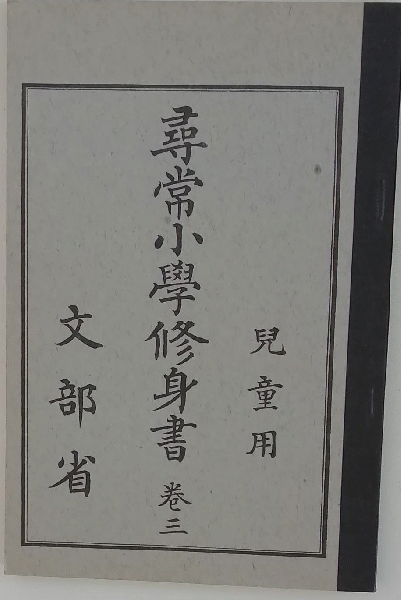 兒童用
尋常小學修身書 卷三
文部省